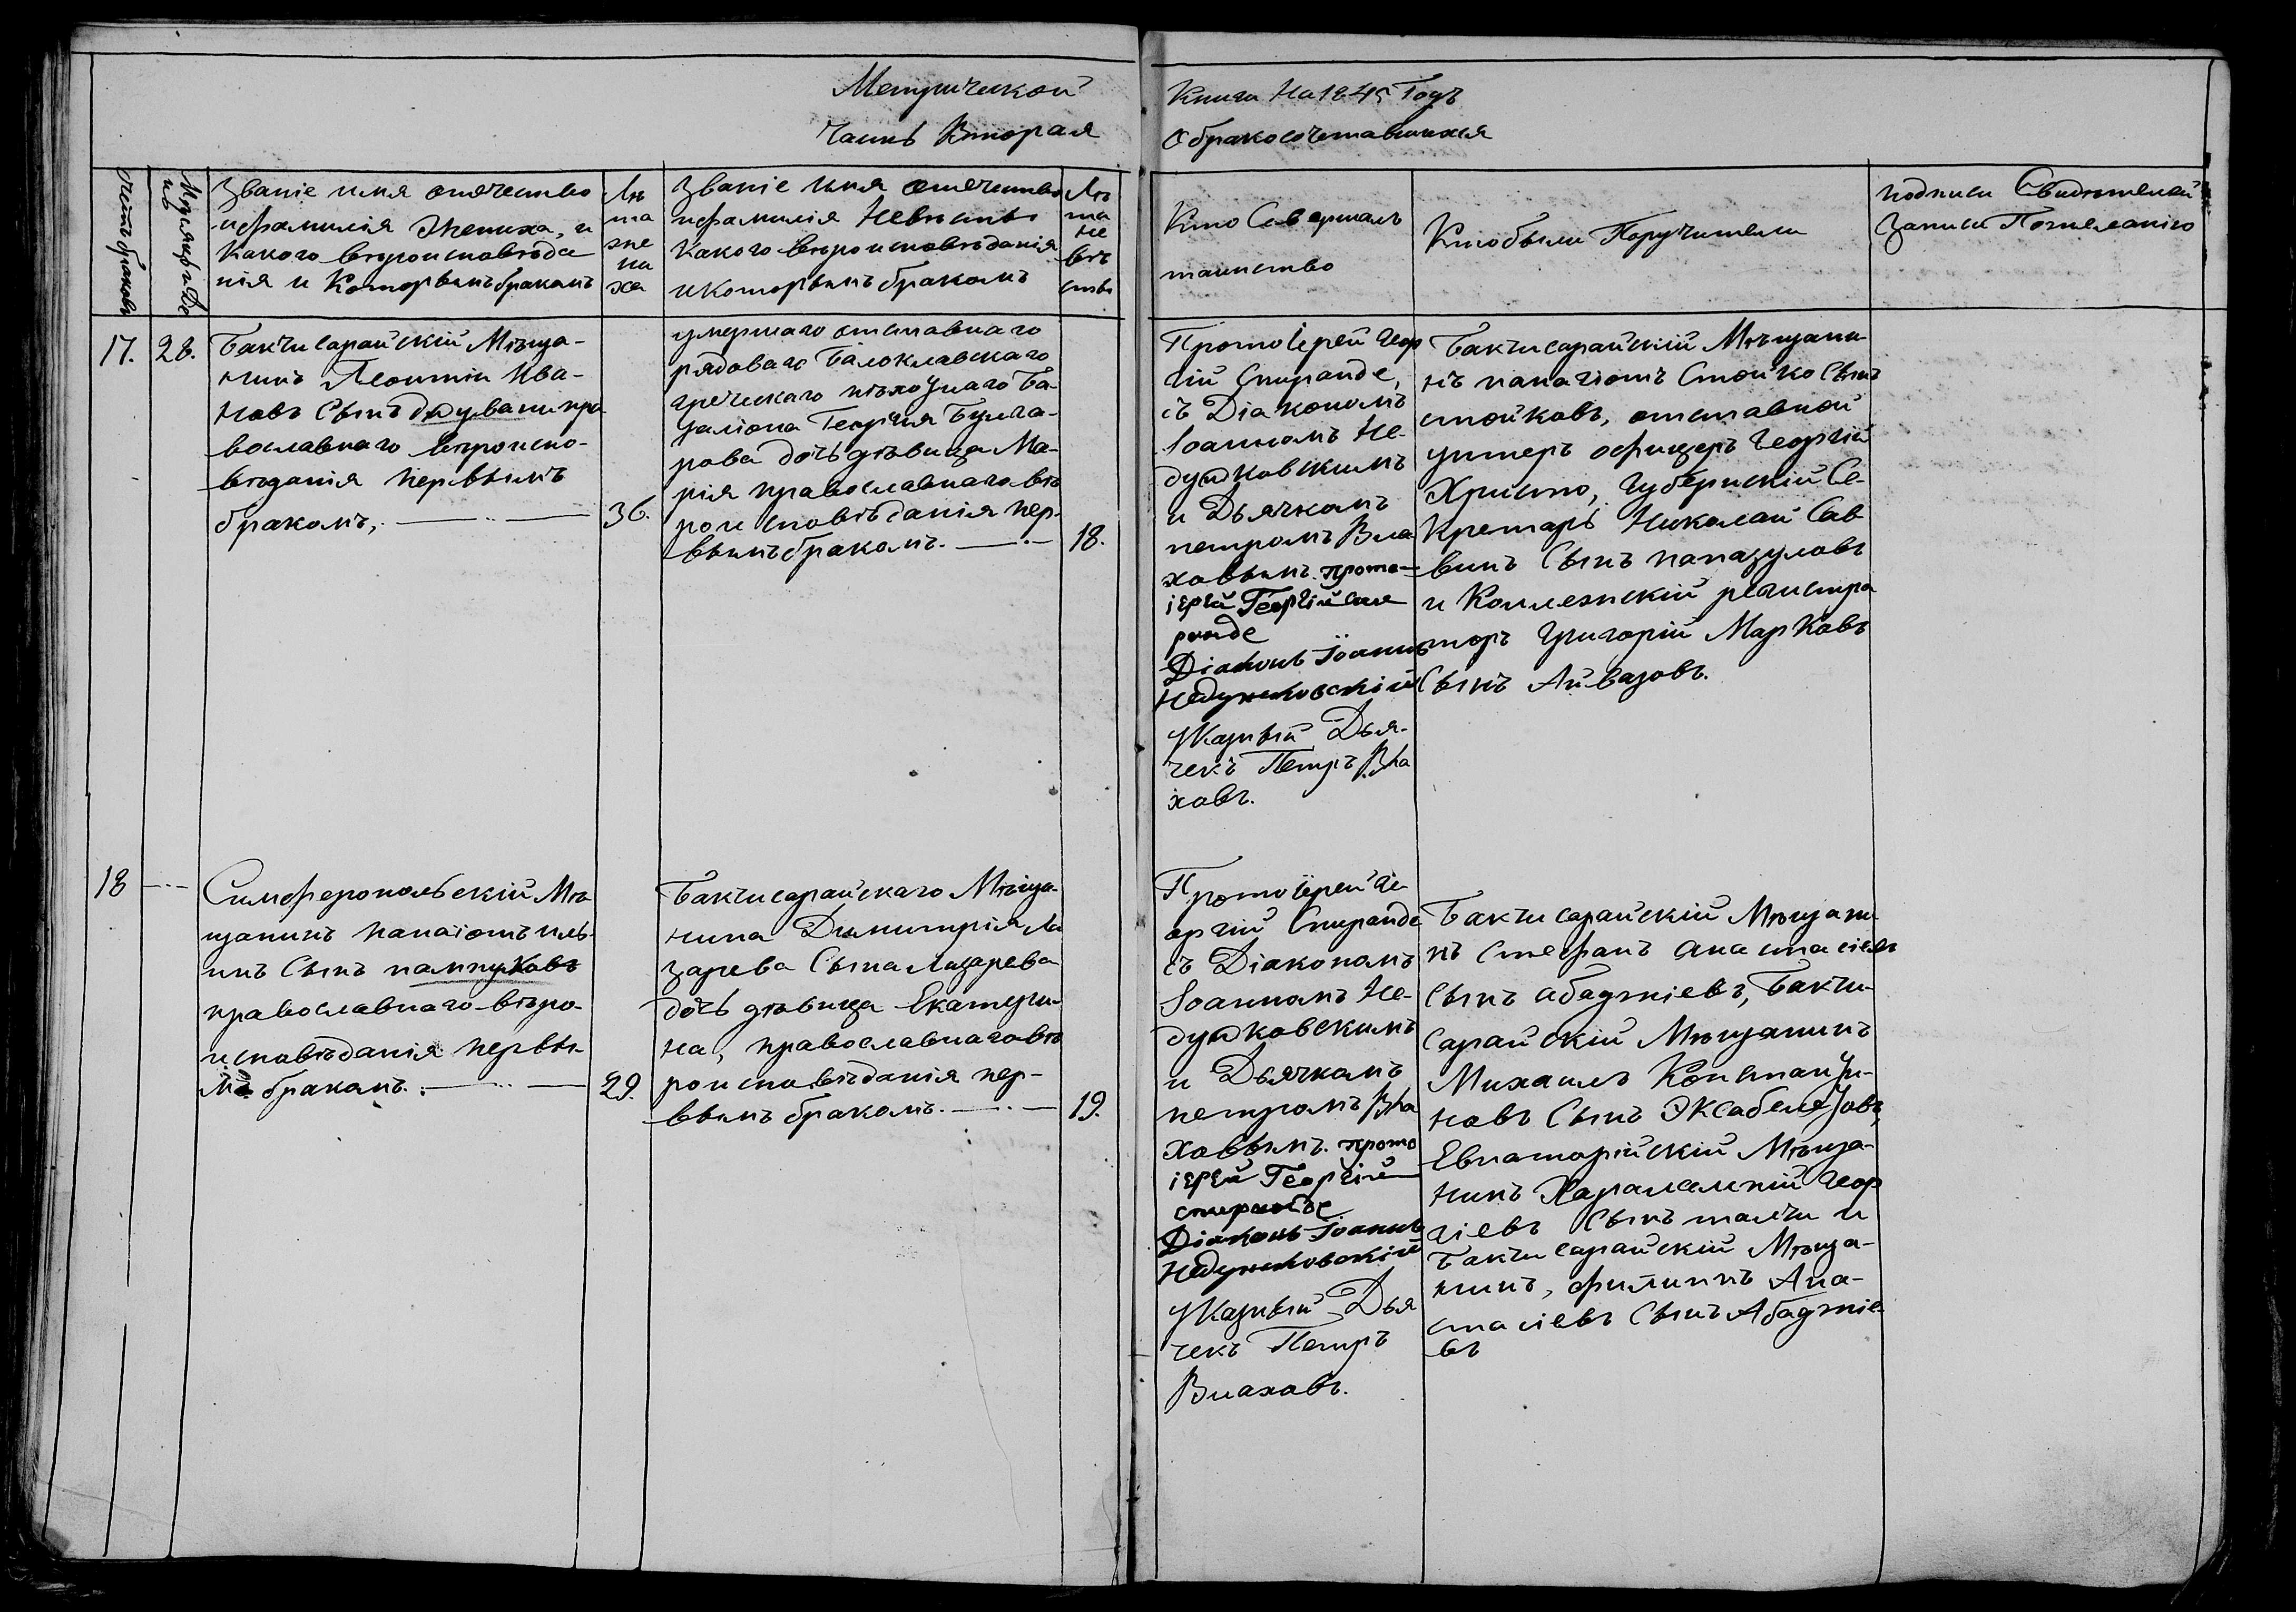 Метрической
Часть Вторая
Книги На 1845 Годъ
О бракосочетавшихся
счетъ браковъ
Звание имя отечество
и фамилія Жениха, и
Какого вѣроисповѣда
нія и Которымъ бракомъ
Лѣ
та
же
ни
ха
Звание Имя отечество
и фамилія Невѣсты
Какого вѣроисповѣданія
и которымъ бракомъ
Лѣ
та
не
вѣс
ты
Кто Совершалъ
таинство
Кто были Поручители
подписи Свидѣтелей
Записи По желанію
17.
28.
Бакчисарайскій Мѣща-
нинъ Леонтіи Ива-
новъ Сынъ пра
вославнаго вѣроиспо-
вѣданія первымъ
бракомъ,
36.
умершаго отставнаго
рядоваго Балоклавскаго
греческаго пѣхотнаго Ба-
таліона Георгия Булга-
рова дочь дѣвица Ма-
рія православнаго вѣ
роисповѣданія пер-
вымъ бракомъ.
18.
Протоіерей Геор
гій Спиранде,
съ Діакономъ
Іоанномъ Не-
душковскимъ
и Дьячкомъ
петромъ Вла
ховымъ. прото-
іерей Георгій Спи
ранде
Діаконъ Іоаннъ
Недушковскій
Указный Дья-
чекъ Петръ Вла
ховъ.
Бакчисарайскій Мѣщани-
нъ панагіотъ Стойко Сынъ
стойковъ, отставной
унтеръ офицеръ Георгій
Христо, Губернскій Се-
кретарь Николай Сав
винъ Сынъ папазуловъ
и Коллежскій регистра
торъ Григорій Марковъ
Сынъ Айвазовъ.
18
Симферопольскій Мѣ
щанинъ панаіотъ иль-
инъ Сынъ пампуковъ
православнаго вѣро-
исповѣданія первы-
мъ бракомъ.
29.
Бакчисарайскаго Мѣща-
нина Димитрія Ла
зарева Сына Лазарева
дочь дѣвица Екатери-
на, православнаго вѣ
роисповѣданія пер-
вымъ бракомъ.
19.
Протоіерей Ге
оргій Спиранде
съ Діакономъ
Іоанномъ Не-
душковскимъ
и Дьячкомъ
петромъ Вла
ховымъ. прото
іерей Георгій
спиранде
Діаконъ Іоаннъ
Недушковскій
Указный Дья
чекъ Петръ
Влаховъ.
Бакчисарайскій Мѣщани-
нъ Стефанъ анастасіевъ
Сынъ абаджіевъ, Бакчи-
сарайскій Мѣщанинъ
Михаилъ Константи-
новъ Сынъ
Евпаторійскій Мѣща-
нинъ Харалампій Геор
гіевъ Сынъ и
Бакчисарайскій Мѣща-
нинъ, филиппъ Ана-
стасіевъ Сынъ Абаджіе-
въ